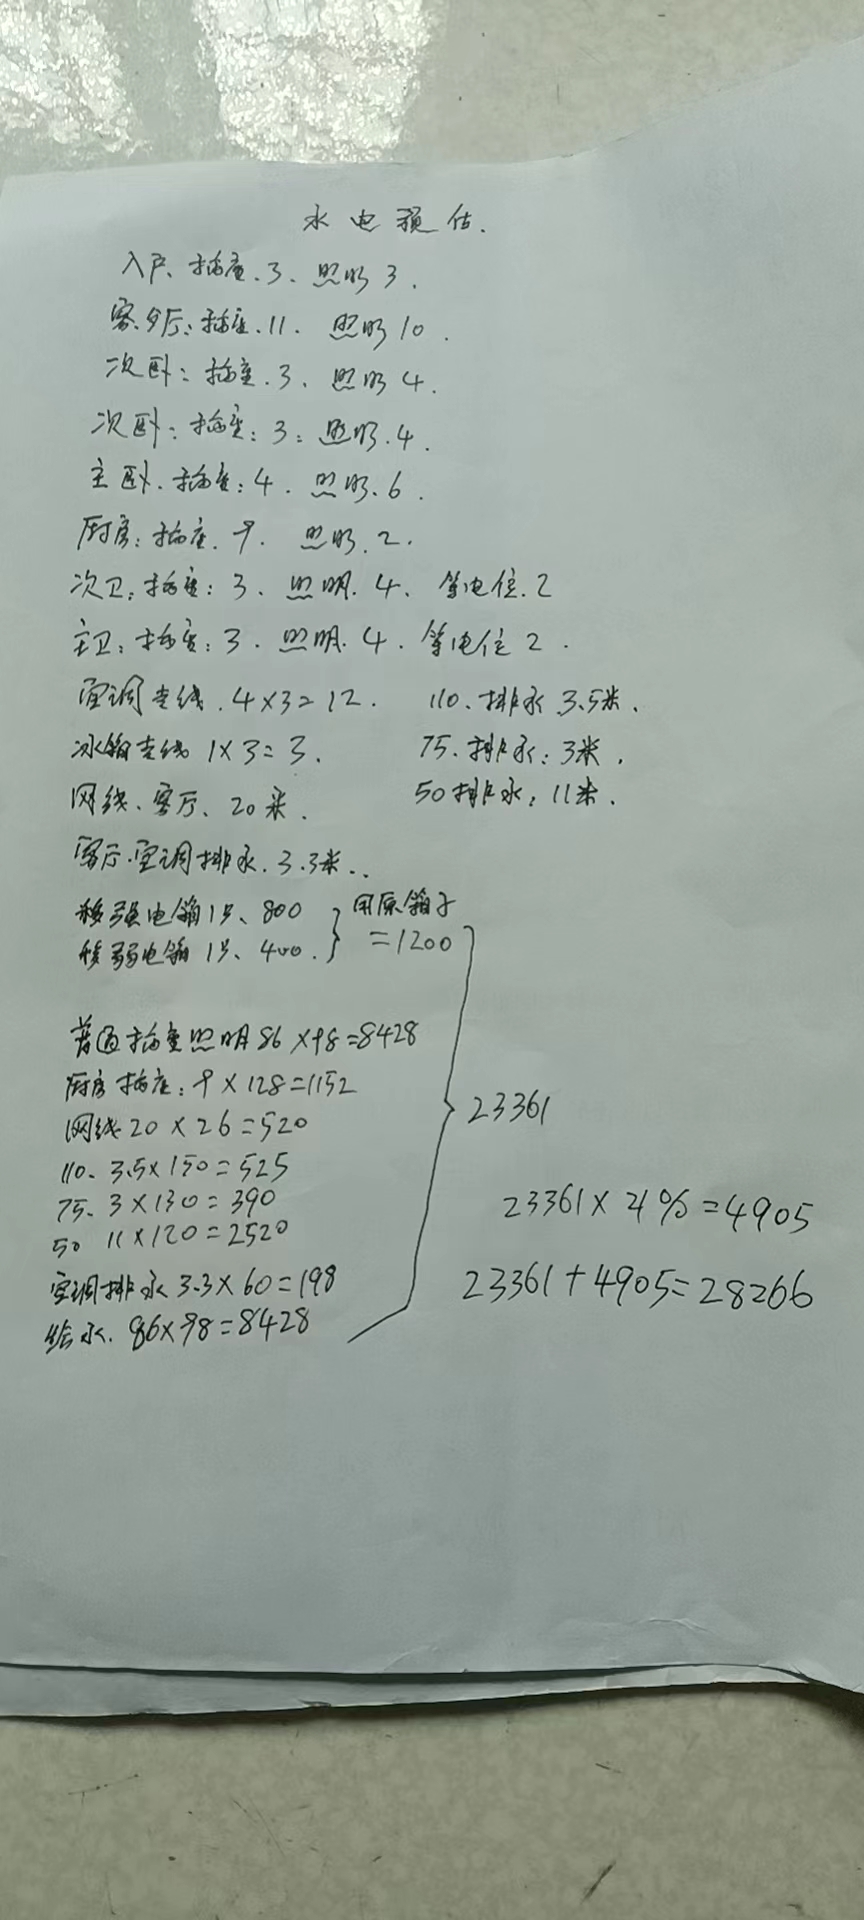 水电预估.
入户、插座.3、照明3.
客.歺厅:插座.11. 照明10.
次卧:插座.3、照明4.
次卧:插座:3:照明.4.
主卧.插座:4. 照明.6.
厨房:插座.9. 照明.2.
次卫:插座:3、照明.4、等电位.2
主卫:插座:3. 照明.4. 等电位2.
空调专线.4×3=12. 110.排水3.5米.
冰箱专线1×3=3. 75.排水:3米.
网线、客厅、20米. 50排水:11米.
客厅.空调排水.3.3米..
移强电箱1只、800
移弱电箱1只、400.
用原箱子
=1200
普通插座照明86×98=8428
厨房插座:9×128=1152
网线20×26=520
110、3.5×150=525
75、3×130=390
50 11×120=2520
空调排水3.3×60=198
给水.86×98=8428
23361
23361×21%=4905
23361+4905=28266